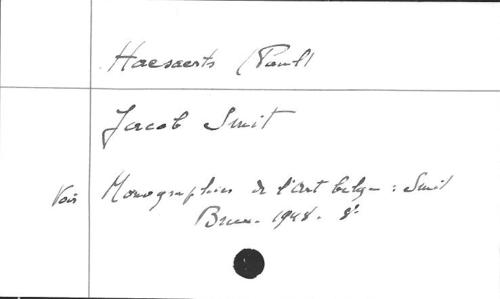 Haesaerts (Paul)
Jacob Smit
Voir Monographies de l'art belge : Smit
Brux. 1948. 8°